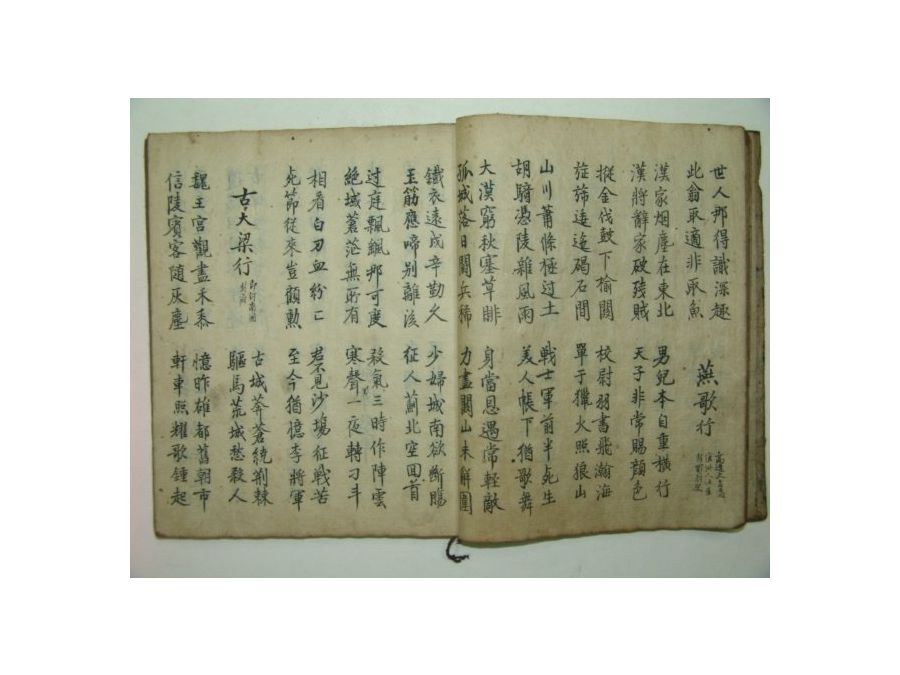 世人那得識深趣
此翁取適非取魚
燕歌行
漢家烟塵在東北 男兒本自重橫行
漢將辭家破殘賊 天子非常賜顔色
摐金伐鼓下榆關 校尉羽書飛瀚海
旌旆逶迤碣石間 單于獵火照狼山
山川蕭條極过土 戰士軍前半死生
胡騎憑陵雜風雨 美人帳下猶歌舞
大漠窮秋塞草腓 身當恩遇常輕敵
孤城落日鬪兵稀 力盡關山未解圍
鐵衣遠戍辛勤久 少婦城南欲斷腸
玉筋應啼别離後 征人薊北空回首
过庭飄飄那可度 殺氣三時作陣雲
絶域蒼茫無所有 寒聲一夜轉刁斗
相看白刃血紛〻 君不見沙場征戰苦
死節從來豈顧勲 至今猶憶李將軍
古大梁行
古城莽蒼繞荆棘
驅馬荒城愁殺人
魏王宮觀盡禾黍 憶昨雄都舊朝市
信陵賓客隨灰塵 軒車照耀歌鍾起